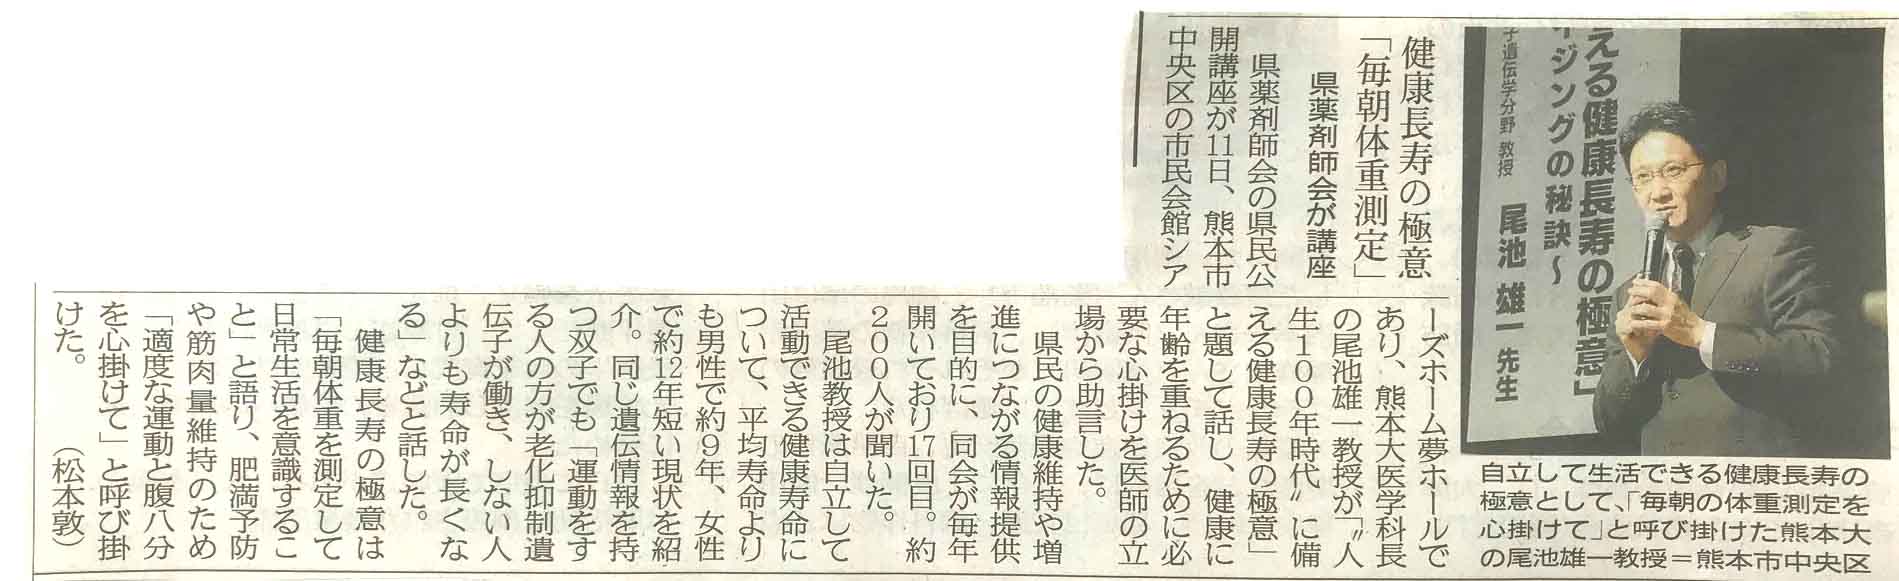 健康長寿の極意
「毎朝体重測定」
県薬剤師会が講座
県薬剤師会の県民公
開講座が11日、熊本市
中央区の市民会館シア
ーズホーム夢ホールで
あり、熊本大医学科長
の尾池雄一教授が「〝人
生100年時代〟に備
える健康長寿の極意」
と題して話し、健康に
年齢を重ねるために必
要な心掛けを医師の立
場から助言した。
県民の健康維持や増
進につながる情報提供
を目的に、同会が毎年
開いており17回目。約
200人が聞いた。
尾池教授は自立して
活動できる健康寿命に
ついて、平均寿命より
も男性で約9年、女性
で約12年短い現状を紹
介。同じ遺伝情報を持
つ双子でも「運動をす
る人の方が老化抑制遺
伝子が働き、しない人
よりも寿命が長くな
る」などと話した。
健康長寿の極意は
「毎朝体重を測定して
日常生活を意識するこ
と」と語り、肥満予防
や筋肉量維持のため
「適度な運動と腹八分
を心掛けて」と呼び掛
けた。　(松本敦)
える健康長寿の極意」
イジングの秘訣～
子遺伝学分野 教授 尾池 雄一 先生
自立して生活できる健康長寿の
極意として、「毎朝の体重測定を
心掛けて」と呼び掛けた熊本大
の尾池雄一教授＝熊本市中央区